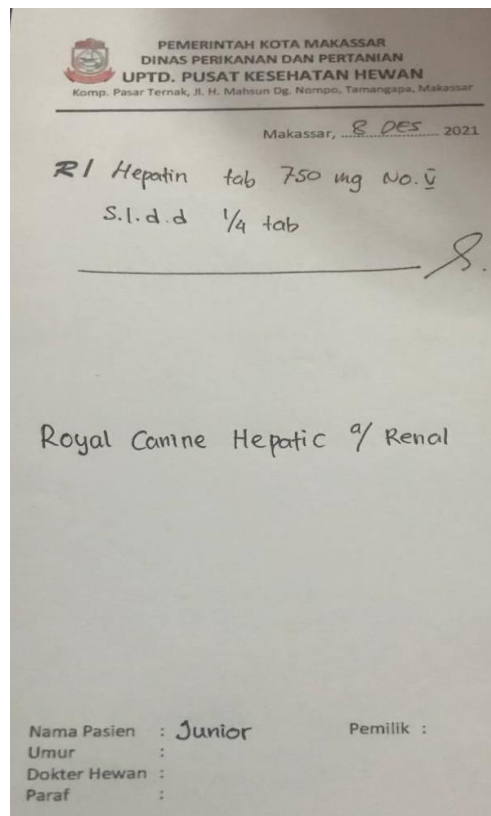 PEMERINTAH KOTA MAKASSAR
DINAS PERIKANAN DAN PERTANIAN
UPTD. PUSAT KESEHATAN HEWAN
Komp. Pasar Ternak, Jl. H. Mahsun Dg. Nompo, Tamangapa, Makassar
Makassar, 8 DES 2021
R/ Hepatin tab 750 mg No. V
S.1.d.d 1/4 tab
Royal Canine Hepatic a/ Renal
Nama Pasien : Junior Pemilik :
Umur :
Dokter Hewan :
Paraf :